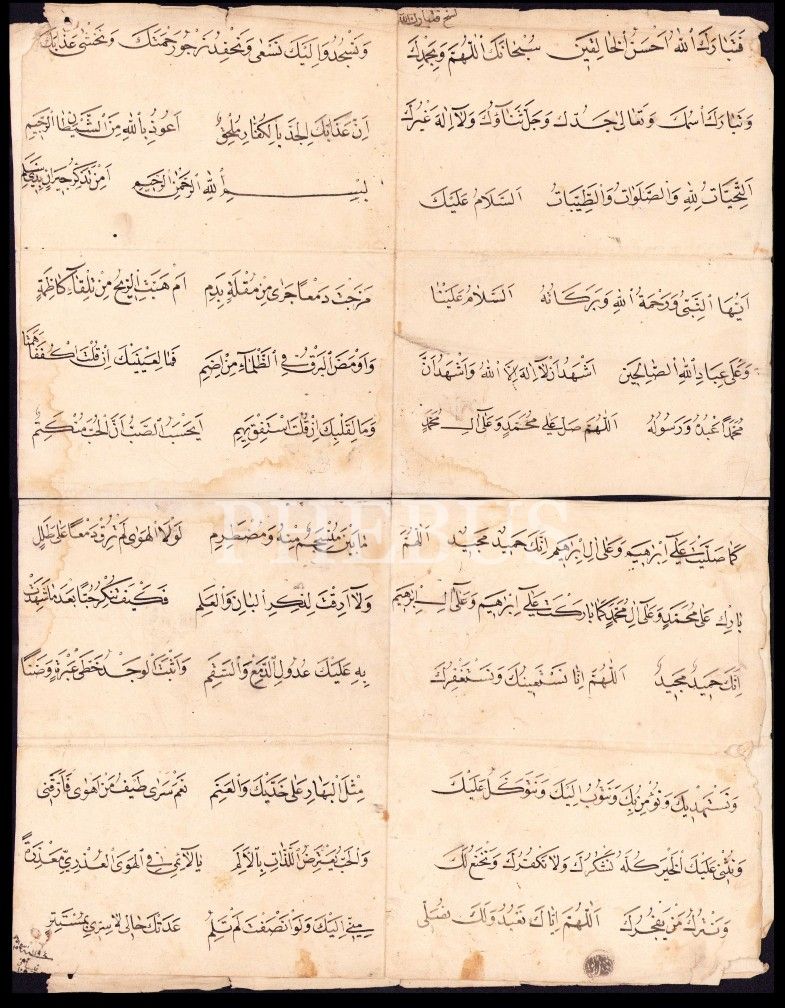 فَتَبَارَكَ اللهُ اَحْسَنُ الْخَالِقِينَ سُبْحَانَكَ اللّٰهُمَّ وَبِحَمْدِكَ
وَتَبَارَكَ اسْمُكَ وَتَعَالىٰ جَدُّكَ وَجَلَّ ثَنَاؤُكَ وَلَآ اِلٰهَ غَيْرُكَ
اَلتَّحِيَّاتُ لِلّٰهِ وَالصَّلَوَاتُ وَالطَّيِّبَاتُ اَلسَّلَامُ عَلَيْكَ
اَيُّهَا النَّبِىُّ وَرَحْمَةُ اللهِ وَبَرَكَاتُهُ اَلسَّلَامُ عَلَيْنَا
وَعَلىٰ عِبَادِ اللهِ الصَّالِحِينَ اَشْهَدُ اَنْ لَآ اِلٰهَ اِلَّا اللهُ وَاَشْهَدُ اَنَّ
مُحَمَّداً عَبْدُهُ وَرَسُولُهُ اَللّٰهُمَّ صَلِّ عَلىٰ مُحَمَّدٍ وَعَلىٰ آلِ مُحَمَّدٍ
كَمَا صَلَّيْتَ عَلىٰٓ اِبْرٰهِيمَ وَعَلىٰ اٰلِ اِبْرٰهِيمَ اِنَّكَ حَمِيدٌ مَجِيدٌ اَللّٰهُمَّ
بَارِكْ عَلىٰ مُحَمَّدٍ وَعَلىٰ آلِ مُحَمَّدٍ كَمَا بَارَكْتَ عَلىٰٓ اِبْرٰهِيمَ وَعَلىٰٓ اٰلِ اِبْرٰهِيمَ
اِنَّكَ حَمِيدٌ مَجِيدٌ اَللّٰهُمَّ اِنَّا نَسْتَعِينُكَ وَنَسْتَغْفِرُكَ
وَنَسْتَهْدِيكَ وَنُؤْمِنُ بِكَ وَنَتُوبُ اِلَيْكَ وَنَتَوَكَّلُ عَلَيْكَ
وَنُثْنِى عَلَيْكَ الْخَيْرَ كُلَّهُ نَشْكُرُكَ وَلَا نَكْفُرُكَ وَنَخْلَعُ
وَنَتْرُكُ مَنْ يَفْجُرُكَ اَللّٰهُمَّ اِيَّاكَ نَعْبُدُ وَلَكَ نُصَلِّى
وَنَسْجُدُ وَاِلَيْكَ نَسْعىٰ وَنَحْفِدُ نَرْجُو رَحْمَتَكَ وَنَخْشىٰ عَذَابَكَ
اِنَّ عَذَابَكَ الْجِدَّ بِالْكُفَّارِ مُلْحِقٌ اَعُوذُ بِاللهِ مِنَ الشَّيْطَانِ الرَّجِيمِ
بِسْمِ اللهِ الرَّحْمٰنِ الرَّحِيمِ اَمِنْ تَذَكُّرِ جِيرَانٍ بِذِى سَلَمٍ
مَزَجْتَ دَمْعاً جَرٰى مِنْ مُقْلَةٍ بِدَمِ اَمْ هَبَّتِ الرِّيحُ مِنْ تِلْقَآءِ كَاظِمَةٍ
وَاَوْمَضَ الْبَرْقُ فِى الظَّلْمَآءِ مِنْ اِضَمِ فَمَا لِعَيْنَيْكَ اِنْ قُلْتَ اكْفُفَا هَمَتَا
وَمَا لِقَلْبِكَ اِنْ قُلْتَ اسْتَفِقْ يَهِمِ اَيَحْسَبُ الصَّبُّ اَنَّ الْحُبَّ مُنْكَتِمٌ
مَا بَيْنَ مُنْسَجِمٍ مِنْهُ وَمُضْطَرِمِ لَوْلَا الْهَوٰى لَمْ تُرِقْ دَمْعاً عَلىٰ طَلَلٍ
وَلَآ اَرِقْتَ لِذِكْرِ الْبَانِ وَالْعَلَمِ فَكَيْفَ تُنْكِرُ حُبّاً بَعْدَ مَا شَهِدَتْ
بِهِ عَلَيْكَ عُدُولُ الدَّمْعِ وَالسَّقَمِ وَاَثْبَتَ الْوَجْدُ خَطَّىْ عَبْرَةٍ وَضَنًا
مِثْلَ الْبَهَارِ عَلىٰ خَدَّيْكَ وَالْعَنَمِ نَعَمْ سَرٰى طَيْفُ مَنْ اَهْوٰى فَاَرَّقَنِى
وَالْحُبُّ يَعْتَرِضُ اللَّذَّاتِ بِالْاَلَمِ يَا لَآئِمِى فِى الْهَوَى الْعُذْرِىِّ مَعْذِرَةً
مِنِّى اِلَيْكَ وَلَوْ اَنْصَفْتَ لَمْ تَلُمِ عَدَتْكَ حَالِىَ لَا سِرِّى بِمُسْتَتِرٍ
PHEBUS